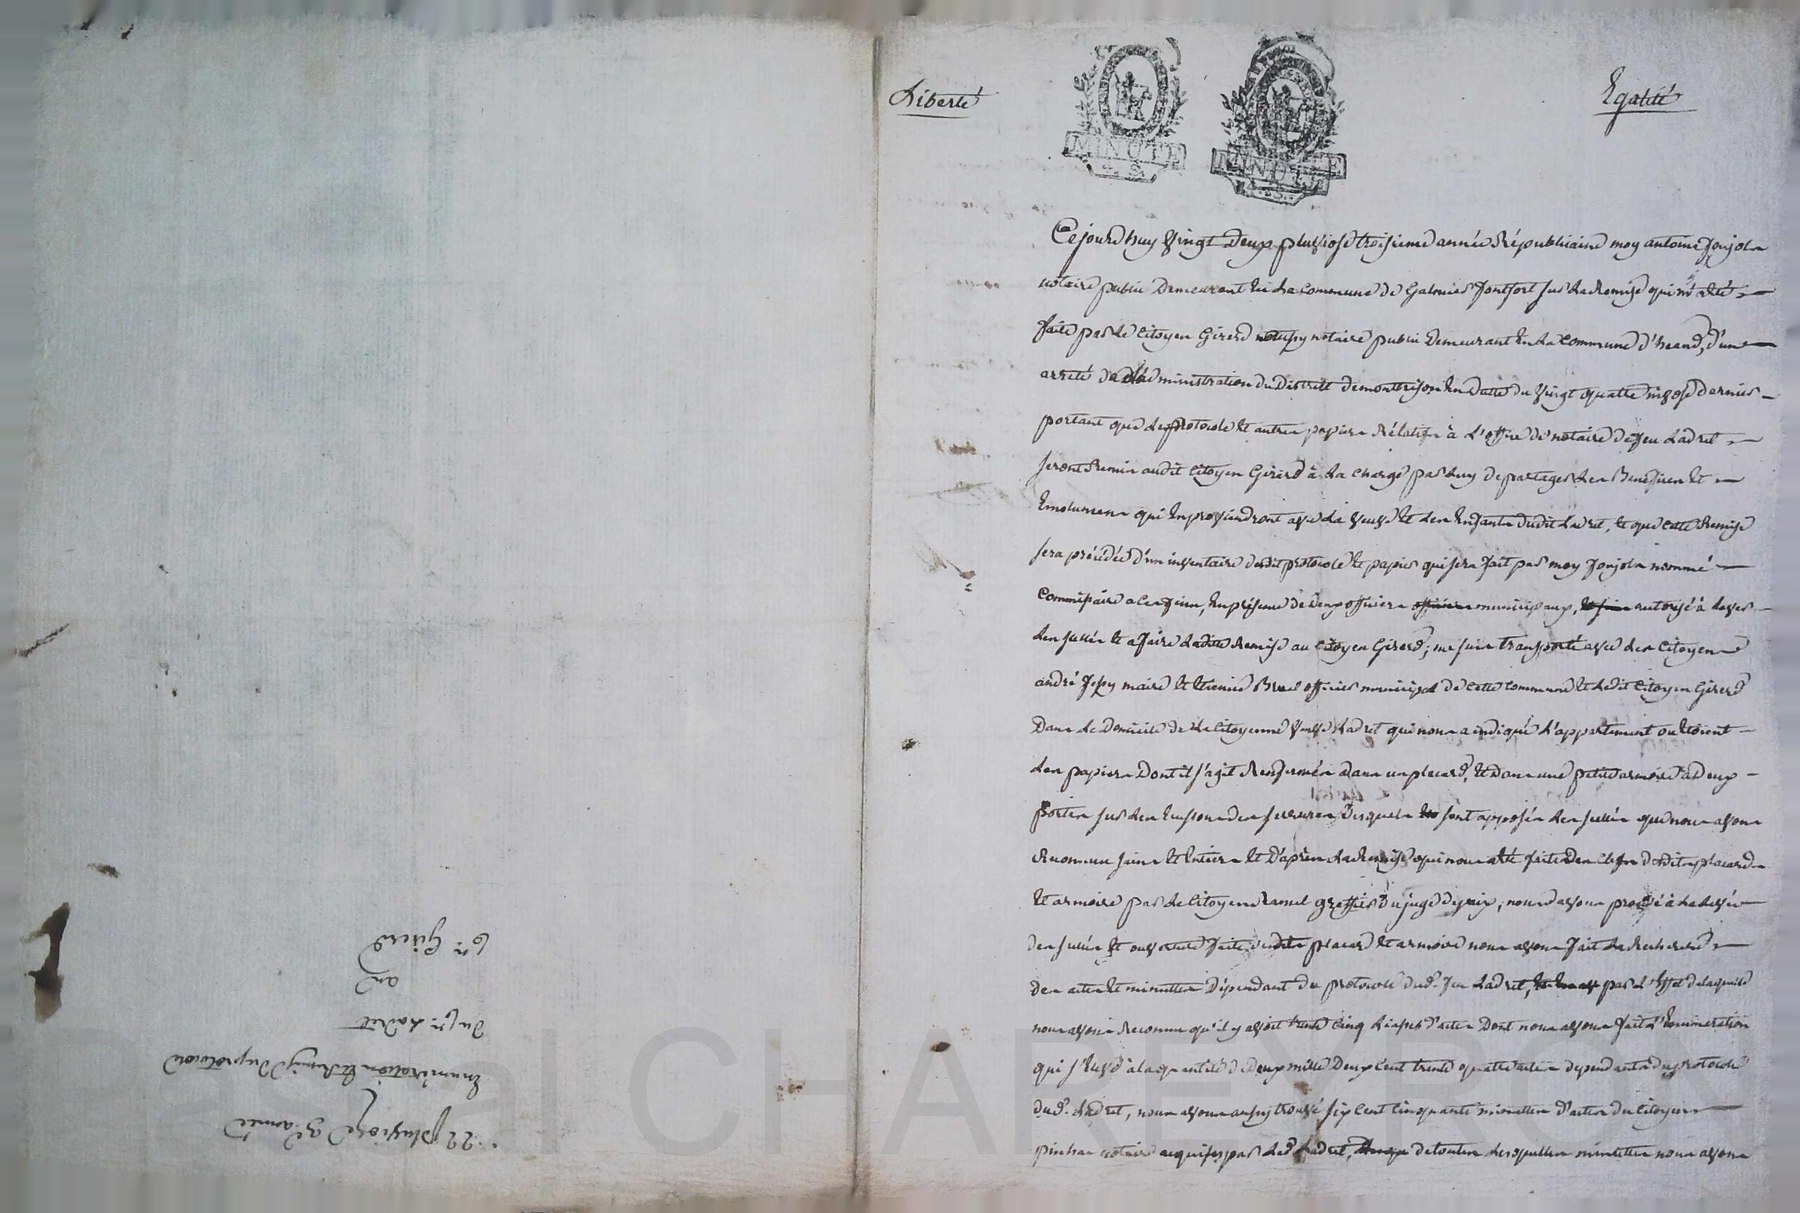 Liberté
Egalité
MINUTE
MINUTE
Ce jourd huy Vingt Deux pluviose troisieme année Républicaine moy antoine Jonjon
notaire public Demeurant En La Commune de Galmier fontfort sur La Remise qui m'a Eté
faite par Le Citoyen Girerd notaire public Demeurant En La Commune d'heand, d'un
arreté de L'administration du District de montbrison En datte du Vingt quatre nivose dernier
portant que Les protocole Et autres papiers Rélatifs à L'office de notaire de feu Ladret
seront Remis audit Citoyen Girerd à La Charge par Luy de partager Les Benefices Et
Emolumens qui En proviendront avec La veuve Et Les Enfants dudit Ladret, Et que Cette Remise
sera précédée d'un inventaire desdit protocole Et papier qui sera fait par moy nommé
Commissaire a Ces fins, En présence de Deux officiers municipaux, autorisé à Lever
Les scellés Et a faire Ladite Remise au Citoyen Girerd; me suis transporté avec Les Citoyens
andré maire Et Etienne officier municipal de Cette Commune Et Ledit Citoyen Girerd
Dans Le Domicile de La Citoyenne Veuve Ladret qui nous a indiqué L'appartement ou Etoient
Les papiers Dont il s'agit Renfermés dans un placard, Et Dans une petite armoire à Deux
portes sur Les des serrures Desquels sont apposés Les scellés que nous avons
Reconnus sains Et Entiers Et D'après La Remise qui nous a Eté faite des Clefs desdits placard
Et armoire par Le Citoyen greffier du juge de paix, nous avons procédé à La Levée
des scellés Et ouverture faite desdits placard Et armoire nous avons fait La Recherche
Des actes Et minuttes Dépendant du protocole dud. feu Ladret, par L'Effet de laquelle
nous avons Reconnu qu'il y avoit trente Cinq Liasses d'actes Dont nous avons fait L'Enumeration
qui s'Eleve à la quantité de Deux mille Deux Cent trente quatre actes dependants du protocole
dud. Ladret, nous avons aussy trouvé six Cent Cinquante minuttes D'actes du Citoyen
notaire acquises par Led Ladret, de toutes Lesquelles minuttes nous avons
22 pluviose 3e année
Enumération Et Remise du protocole
du Cn. Ladret
au
Cn. Girerd
al CHAREYRON